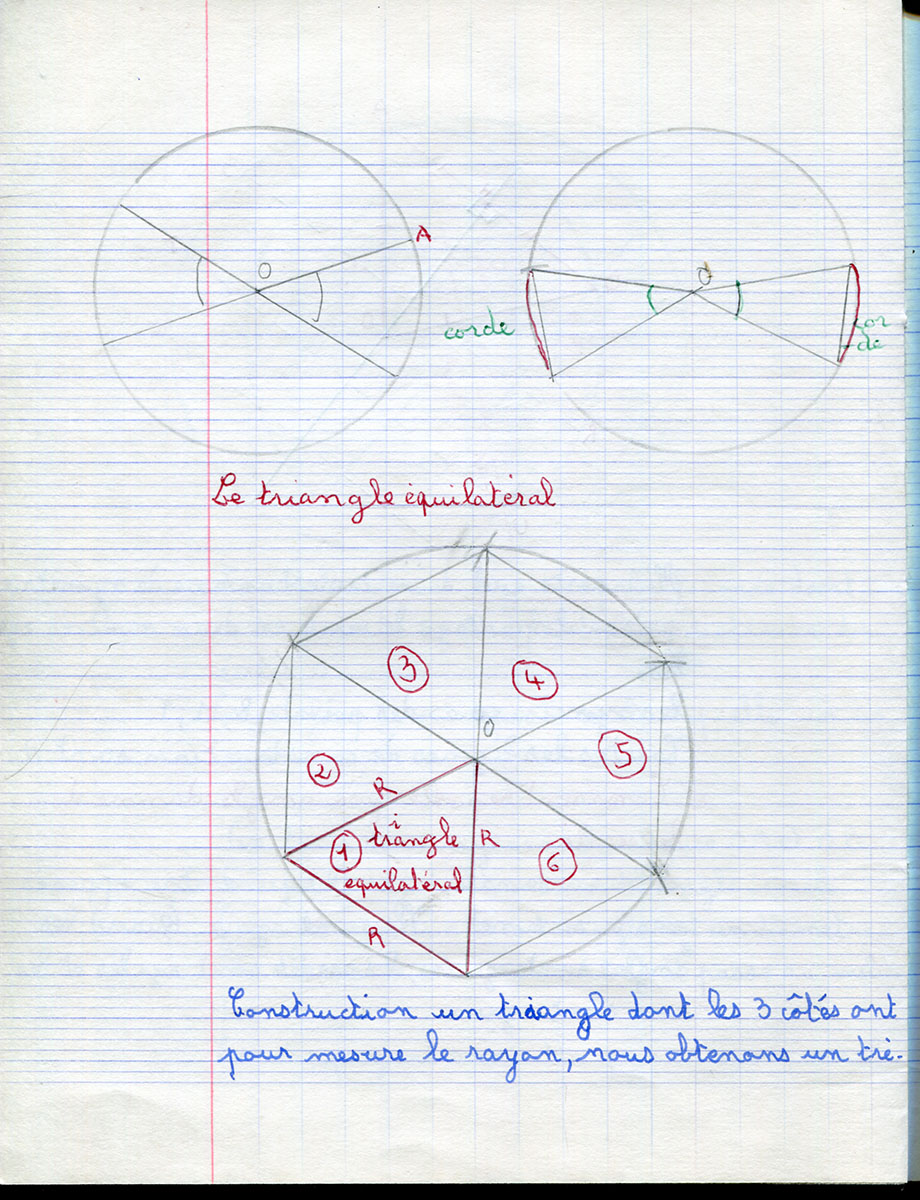 A
O
O
corde
cor
de
Le triangle équilatéral
3
4
O
5
2
R
1
triangle
R
6
equilatéral
R
Construction un triangle dont les 3 côtés ont
pour mesure le rayon, nous obtenons un tri-